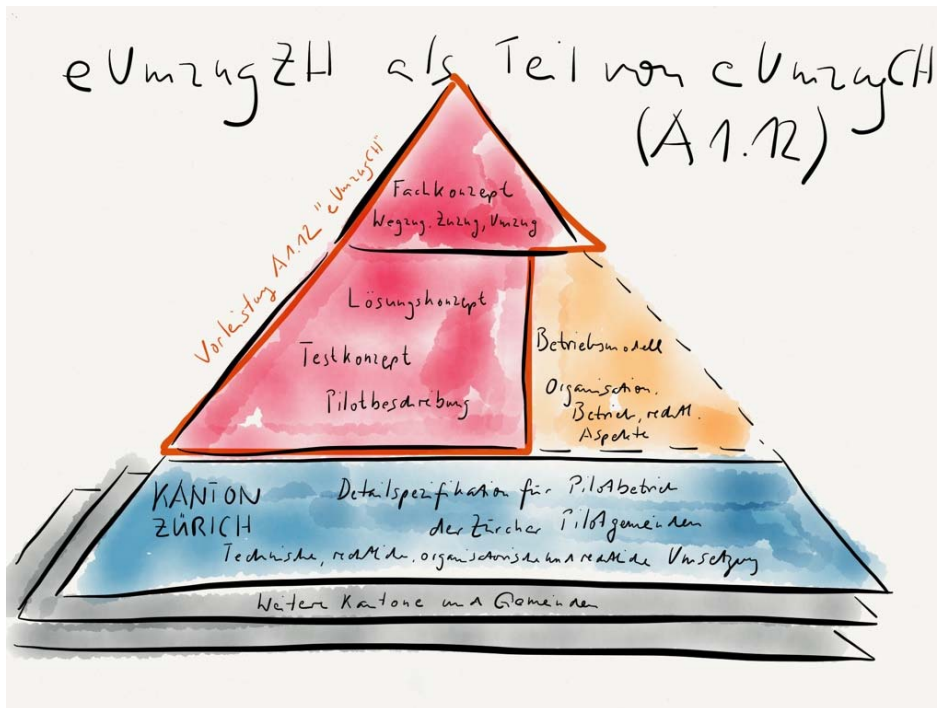 eUmzugZH als Teil von eUmzugCH
(A1.12)
Vorleistung A1.12 "eUmzugCH"
Fachkonzept
Wegzug, Zuzug, Umzug
Lösungskonzept
Testkonzept
Pilotbeschreibung
Betriebsmodell
Organisation,
Betrieb, rechtl.
Aspekte
KANTON
ZÜRICH
Detailspezifikation für Pilotbetrieb
der Zürcher Pilotgemeinden
Technische, rechtliche, organisatorische und rechtliche Umsetzung
Weitere Kantone und Gemeinden